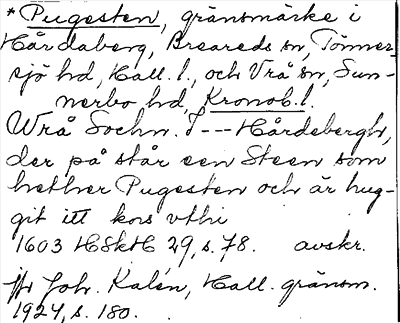 * Pugesten, gränsmärke i
Hårdaberg, Breareds sn, Tönner-
sjö hd, Hall. l., och Vrå sn, Sun-
nerbo hd, Kronob. l.
Wrå Sochn. I --- Hårdebergh,
der på står een Steen som
hether Pugesten och är hug-
git itt kors vthi
1603 HSkH 29, s. 78. avskr.
Joh. Kalén, Hall. gränsm.
1924, s. 180.